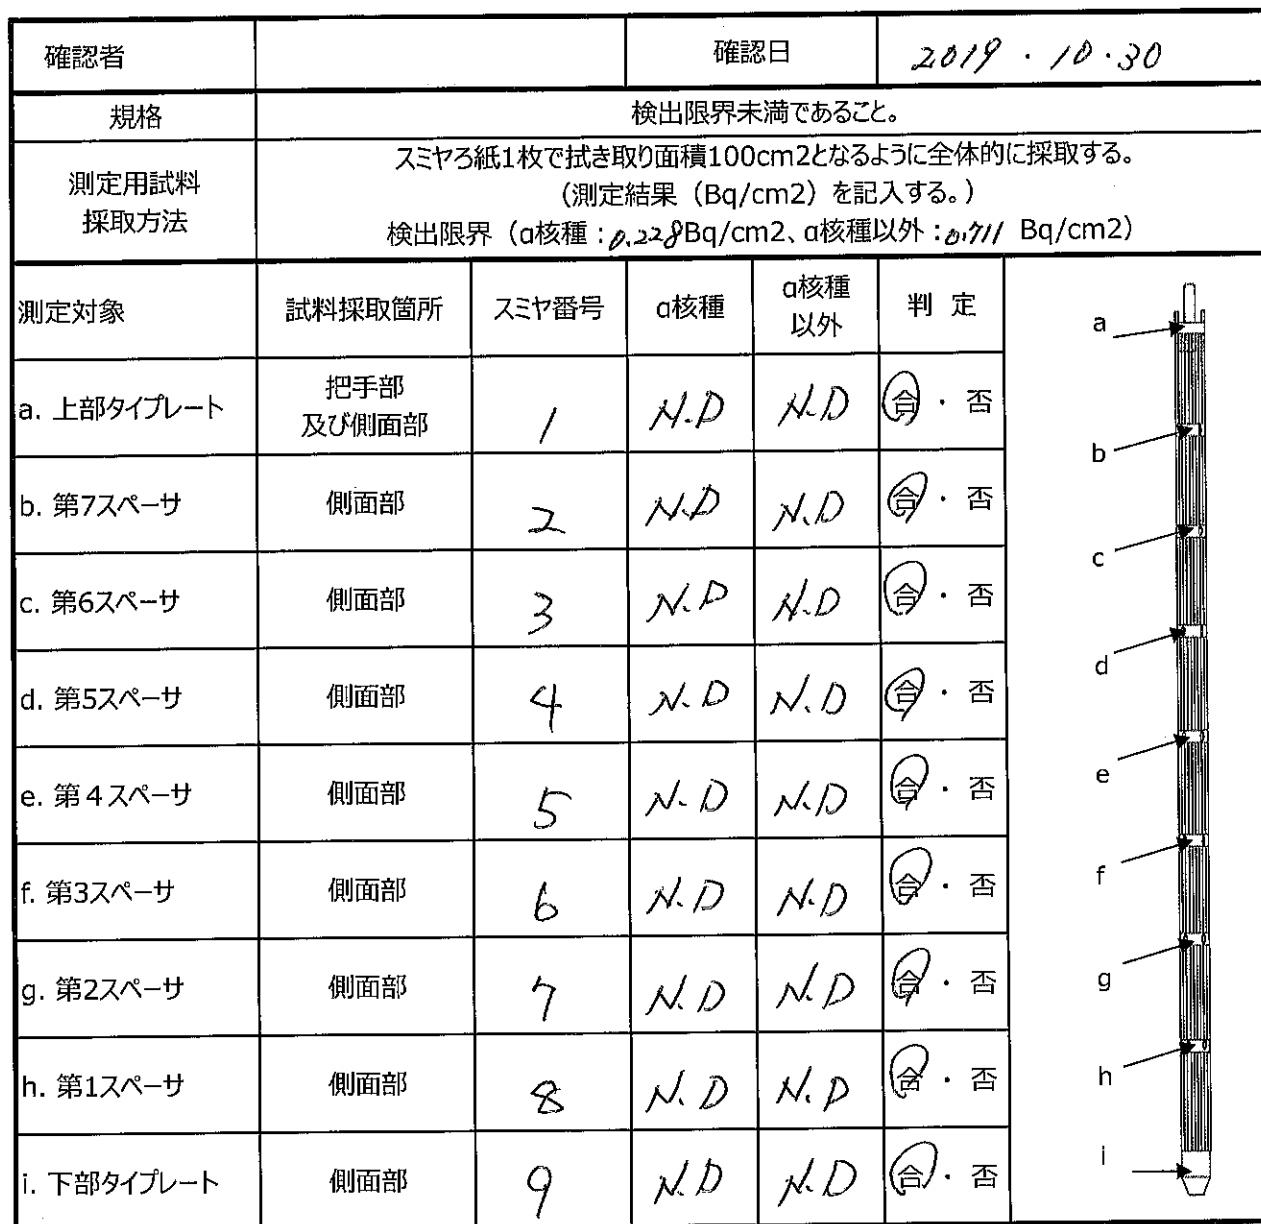 確認者 確認日 2019・10・30
規格 検出限界未満であること。
測定用試料
採取方法
スミヤろ紙1枚で拭き取り面積100cm2となるように全体的に採取する。
(測定結果(Bq/cm2)を記入する。)
検出限界(α核種:0.228Bq/cm2、α核種以外:0.711 Bq/cm2)
測定対象 試料採取箇所 スミヤ番号 α核種 α核種以外 判 定
a. 上部タイプレート 把手部及び側面部 1 N.D N.D 合・否
b. 第7スペーサ 側面部 2 N.D N.D 合・否
c. 第6スペーサ 側面部 3 N.D N.D 合・否
d. 第5スペーサ 側面部 4 N.D N.D 合・否
e. 第4スペーサ 側面部 5 N.D N.D 合・否
f. 第3スペーサ 側面部 6 N.D N.D 合・否
g. 第2スペーサ 側面部 7 N.D N.D 合・否
h. 第1スペーサ 側面部 8 N.D N.D 合・否
i. 下部タイプレート 側面部 9 N.D N.D 合・否
a
b
c
d
e
f
g
h
i